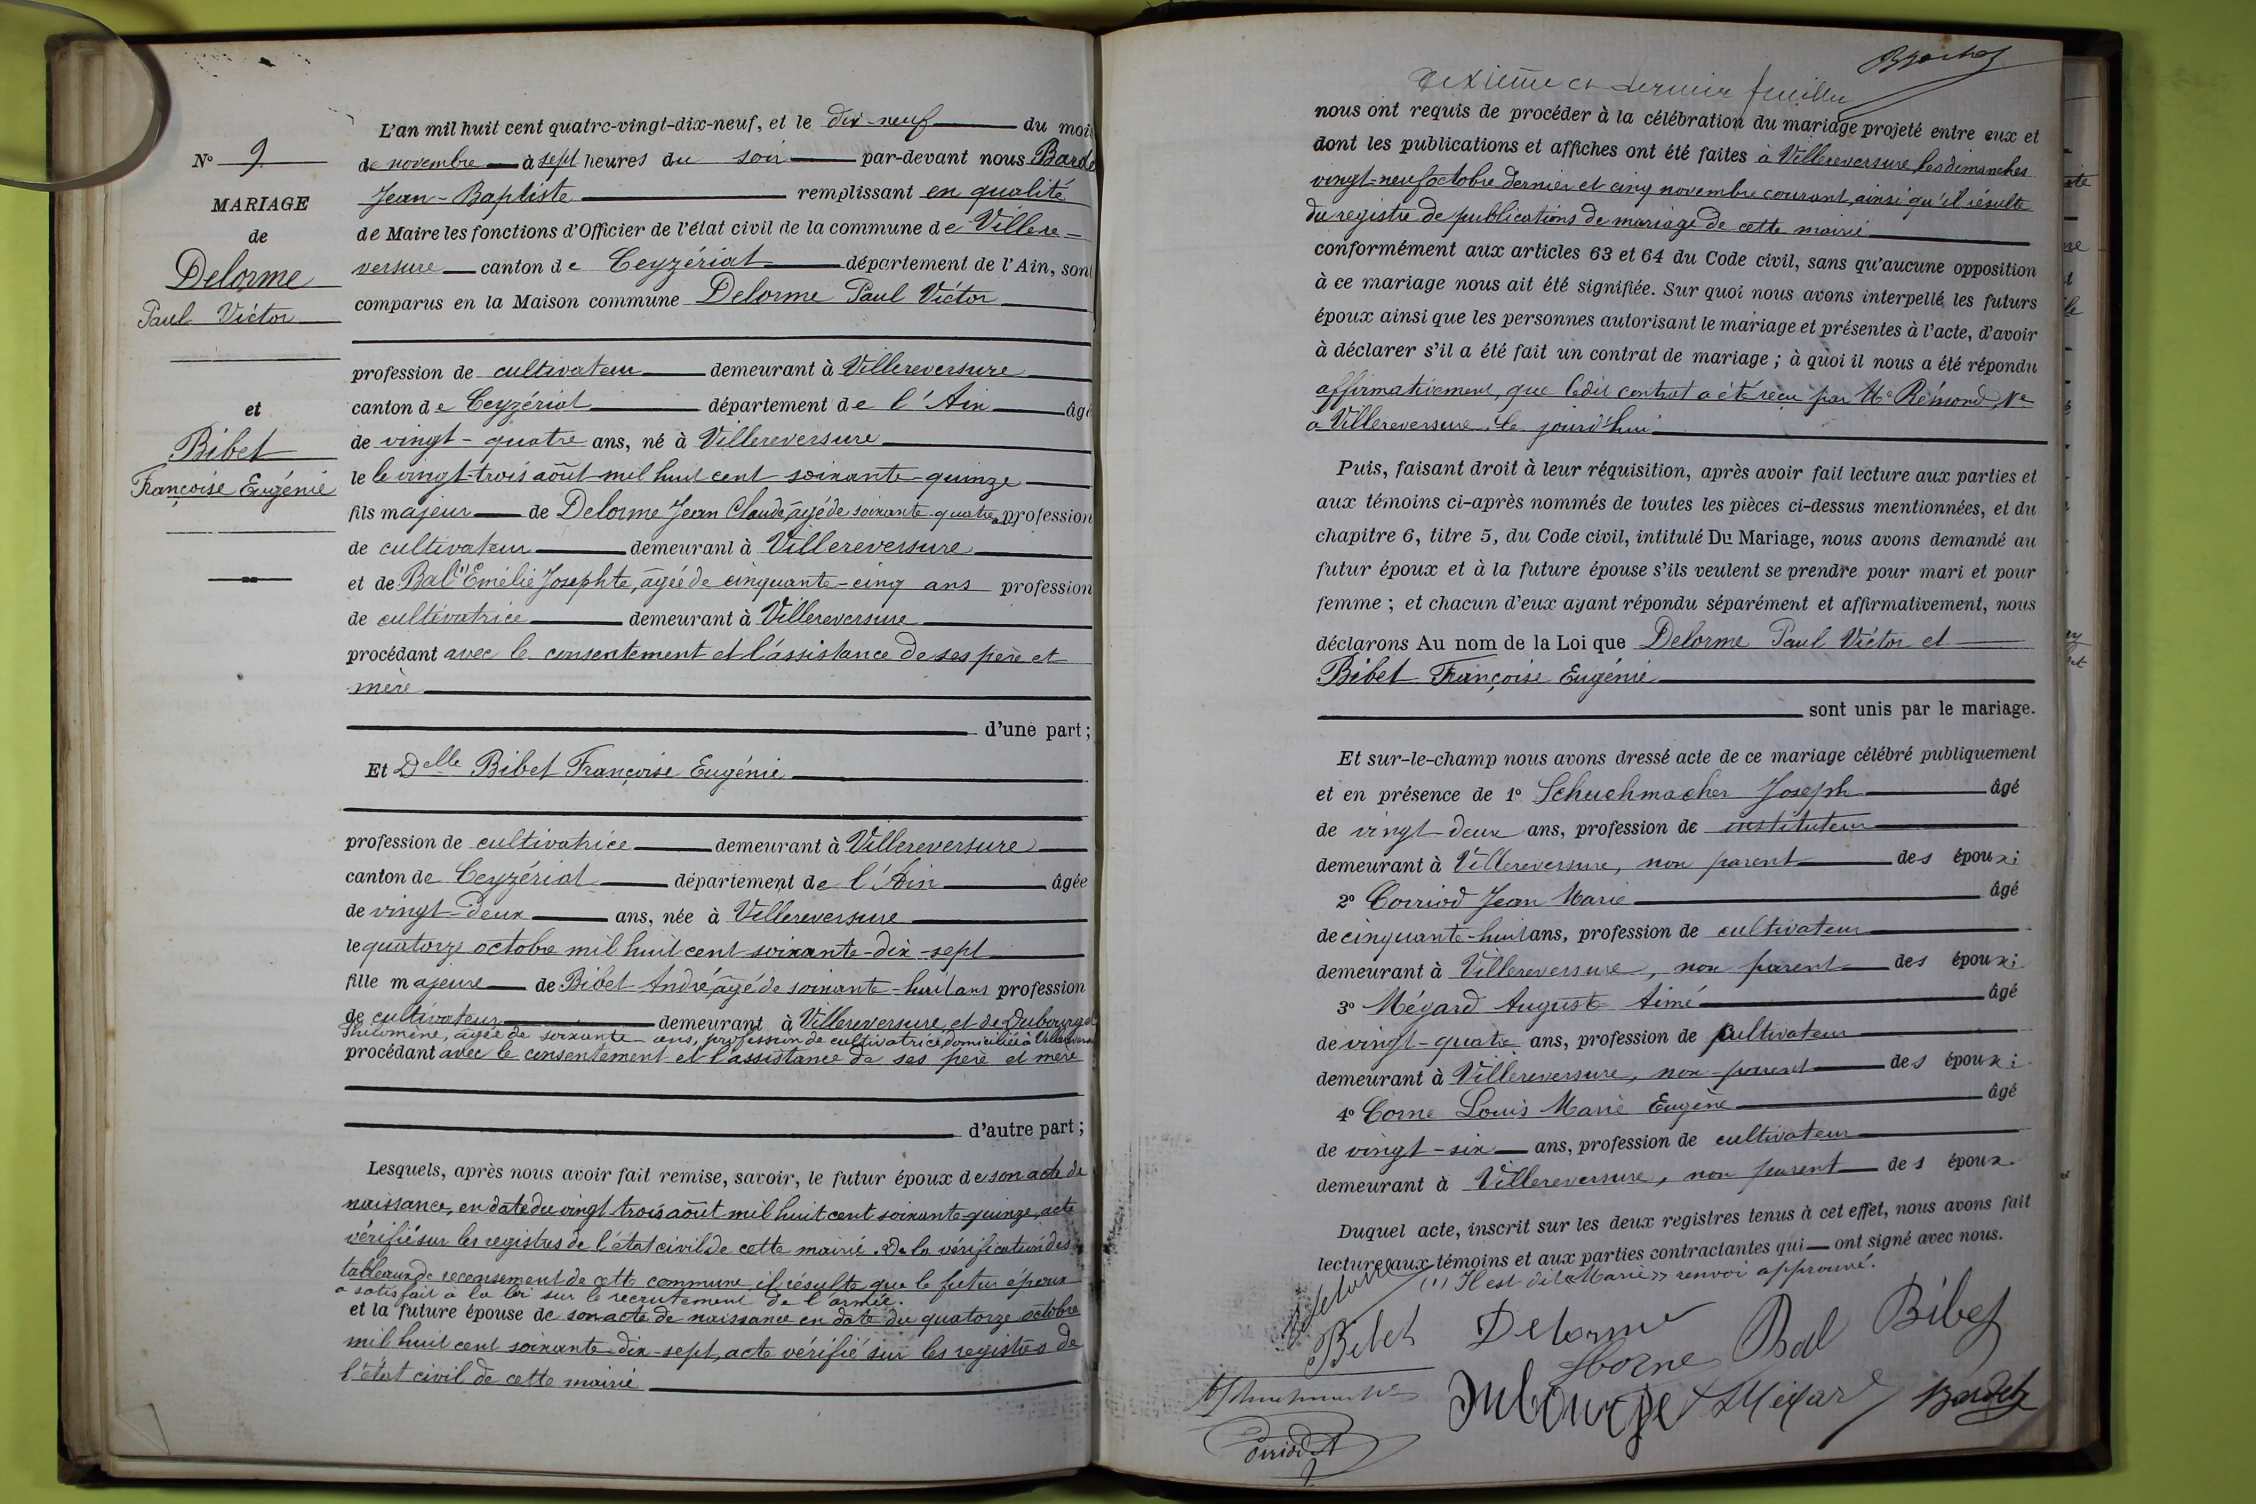 L'an mil huit cent quatre-vingt-dix-neuf, et le dix-neuf du mois
N° 9
de novembre à sept heures du soir par-devant nous Bardet
MARIAGE
Jean-Baptiste remplissant en qualité
de
de Maire les fonctions d'Officier de l'état civil de la commune de Villere-
Delorme
versure canton de Ceyzériat département de l'Ain, sont
Paul Victor
comparus en la Maison commune Delorme Paul Victor
profession de cultivateur demeurant à Villereversure
et
canton de Ceyzériat département de l'Ain âgé
Bibet
de vingt-quatre ans, né à Villereversure
Françoise Eugénie
le le vingt-trois août mil huit cent soixante-quinze
fils majeur de Delorme Jean Claude, âgé de soixante-quatre profession
de cultivateur demeurant à Villereversure
et de Bal (1) Emélie Josephte, âgée de cinquante-cinq ans profession
de cultivatrice demeurant à Villereversure
procédant avec le consentement et l'assistance de ses père et
mère
d'une part;
Et Delle Bibet Françoise Eugénie
profession de cultivatrice demeurant à Villereversure
canton de Ceyzériat département de l'Ain âgée
de vingt-deux ans, née à Villereversure
le quatorze octobre mil huit cent soixante-dix-sept
fille majeure de Bibet André, âgé de soixante-huit ans profession
de cultivateur demeurant à Villereversure et de Dubourget
Philomène, âgée de soixante ans, profession de cultivatrice domiciliée à Villereversure
procédant avec le consentement et l'assistance de ses père et mère
d'autre part;
Lesquels, après nous avoir fait remise, savoir, le futur époux de son acte de
naissance, en date du vingt trois août mil huit cent soixante-quinze, acte
vérifié sur les registres de l'état civil de cette mairie. De la vérification des
tableaux de recensement de cette commune il résulte que le futur époux
a satisfait à la loi sur le recrutement de l'armée.
et la future épouse de son acte de naissance en date du quatorze octobre
mil huit cent soixante-dix-sept, acte vérifié sur les registres de
l'état civil de cette mairie
et dernier feuillet
nous ont requis de procéder à la célébration du mariage projeté entre eux et
dont les publications et affiches ont été faites à Villereversure les dimanches
vingt-neuf octobre dernier et cinq novembre courant, ainsi qu'il résulte
du registre de publications de mariage de cette mairie
conformément aux articles 63 et 64 du Code civil, sans qu'aucune opposition
à ce mariage nous ait été signifiée. Sur quoi nous avons interpellé les futurs
époux ainsi que les personnes autorisant le mariage et présentes à l'acte, d'avoir
à déclarer s'il a été fait un contrat de mariage ; à quoi il nous a été répondu
affirmativement, que ledit contrat a été reçu par Me Rémond, Nre
à Villereversure, le jourd'hui
Puis, faisant droit à leur réquisition, après avoir fait lecture aux parties et
aux témoins ci-après nommés de toutes les pièces ci-dessus mentionnées, et du
chapitre 6, titre 5, du Code civil, intitulé Du Mariage, nous avons demandé au
futur époux et à la future épouse s'ils veulent se prendre pour mari et pour
femme ; et chacun d'eux ayant répondu séparément et affirmativement, nous
déclarons Au nom de la Loi que Delorme Paul Victor et
Bibet Françoise Eugénie
sont unis par le mariage.
Et sur-le-champ nous avons dressé acte de ce mariage célébré publiquement
et en présence de 1° Schuehmacher Joseph âgé
de vingt-deux ans, profession de instituteur
demeurant à Villereversure, non parent des époux;
2° Corriod Jean Marie âgé
de cinquante-huit ans, profession de cultivateur
demeurant à Villereversure, non parent des époux;
3° Mégard Auguste Aimé âgé
de vingt-quatre ans, profession de cultivateur
demeurant à Villereversure, non parent des époux;
4° Corne Louis Marie Eugène âgé
de vingt-six ans, profession de cultivateur
demeurant à Villereversure, non parent des époux.
Duquel acte, inscrit sur les deux registres tenus à cet effet, nous avons fait
lecture aux témoins et aux parties contractantes qui ont signé avec nous.
(1) Il est dit «Marie» renvoi approuvé.
Delorme
Bibet Delorme Bal Bibet
Corne
Dubourget Mégard Bardet
Corriod